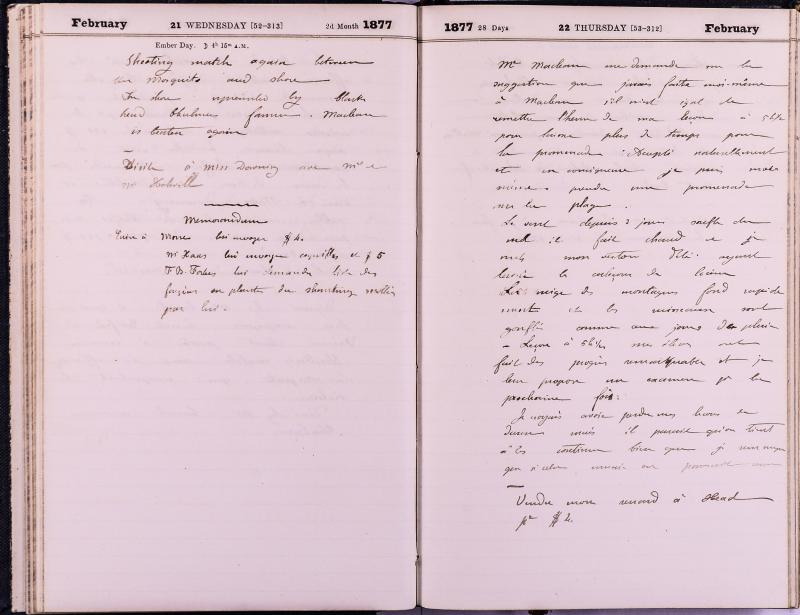 February 21 WEDNESDAY [52-313] 2d Month 1877
Ember Day. ☽ 4h 15m A.M.
Shooting match again between
the Mosquito and shore
The shore represented by black
head
is beaten again
Visite à Miss Downing avec Mr et
Mr
Memorandum
Ecrire à Morse lui envoyer $4.
Mr Haas lui envoyer coquilles et $5
F. B. Forbes lui demander liste des
plante du Shantung
par lui.
1877 28 Days 22 THURSDAY [53-312] February
Mr Maclean me demande sur la
suggestion que j'avais faite moi-même
à Maclean s'il m'est égal de
remettre l'heure de ma leçon à 5h½
pour laisser plus de temps pour
la promenade. Accepté naturellement
et en conséquence je puis moi
même prendre une promenade
sur la plage.
Le vent depuis 2 jours souffle du
sud il fait chaud et je
mets mon veston d'été ayant
laissé le caleçon de laine
La neige des montagnes fond rapide
ment et les ruisseaux sont
gonflés comme aux jours de pluie
- Leçon à 5h½ mes élèves ont
fait des progrès remarquable et je
leur propose un examen pr la
prochaine fois.
Je croyais avoir perdu mes leçons
mais il paraît qu'on tient
à les continuer bien que je
que
Vendu mon renard à Head
pr $2.